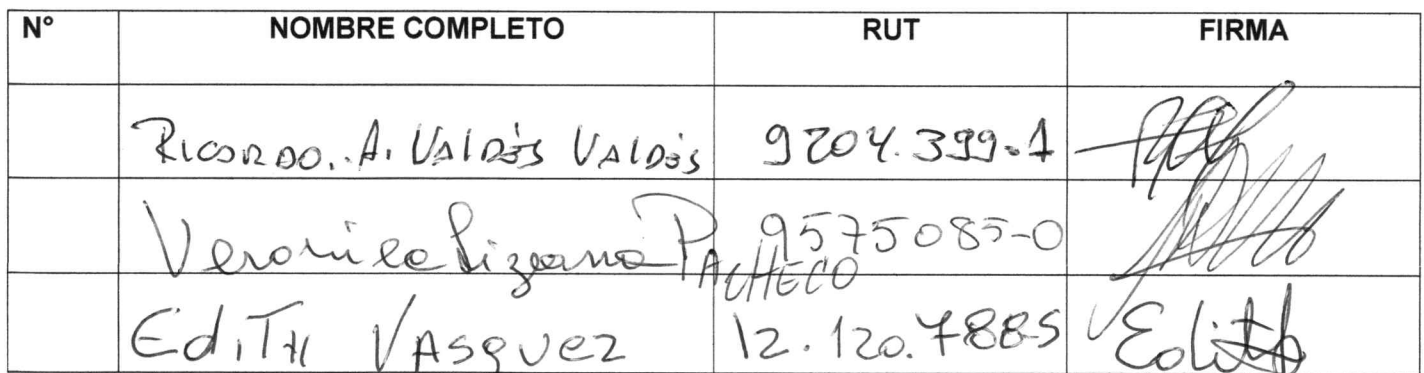 N° NOMBRE COMPLETO RUT FIRMA
RICARDO. A. VALDÉS VALDÉS 9204.399-1
Veronica Lizana PACHECO 9575085-0
EdiTH VASQUEZ 12.120.788-5 Edith